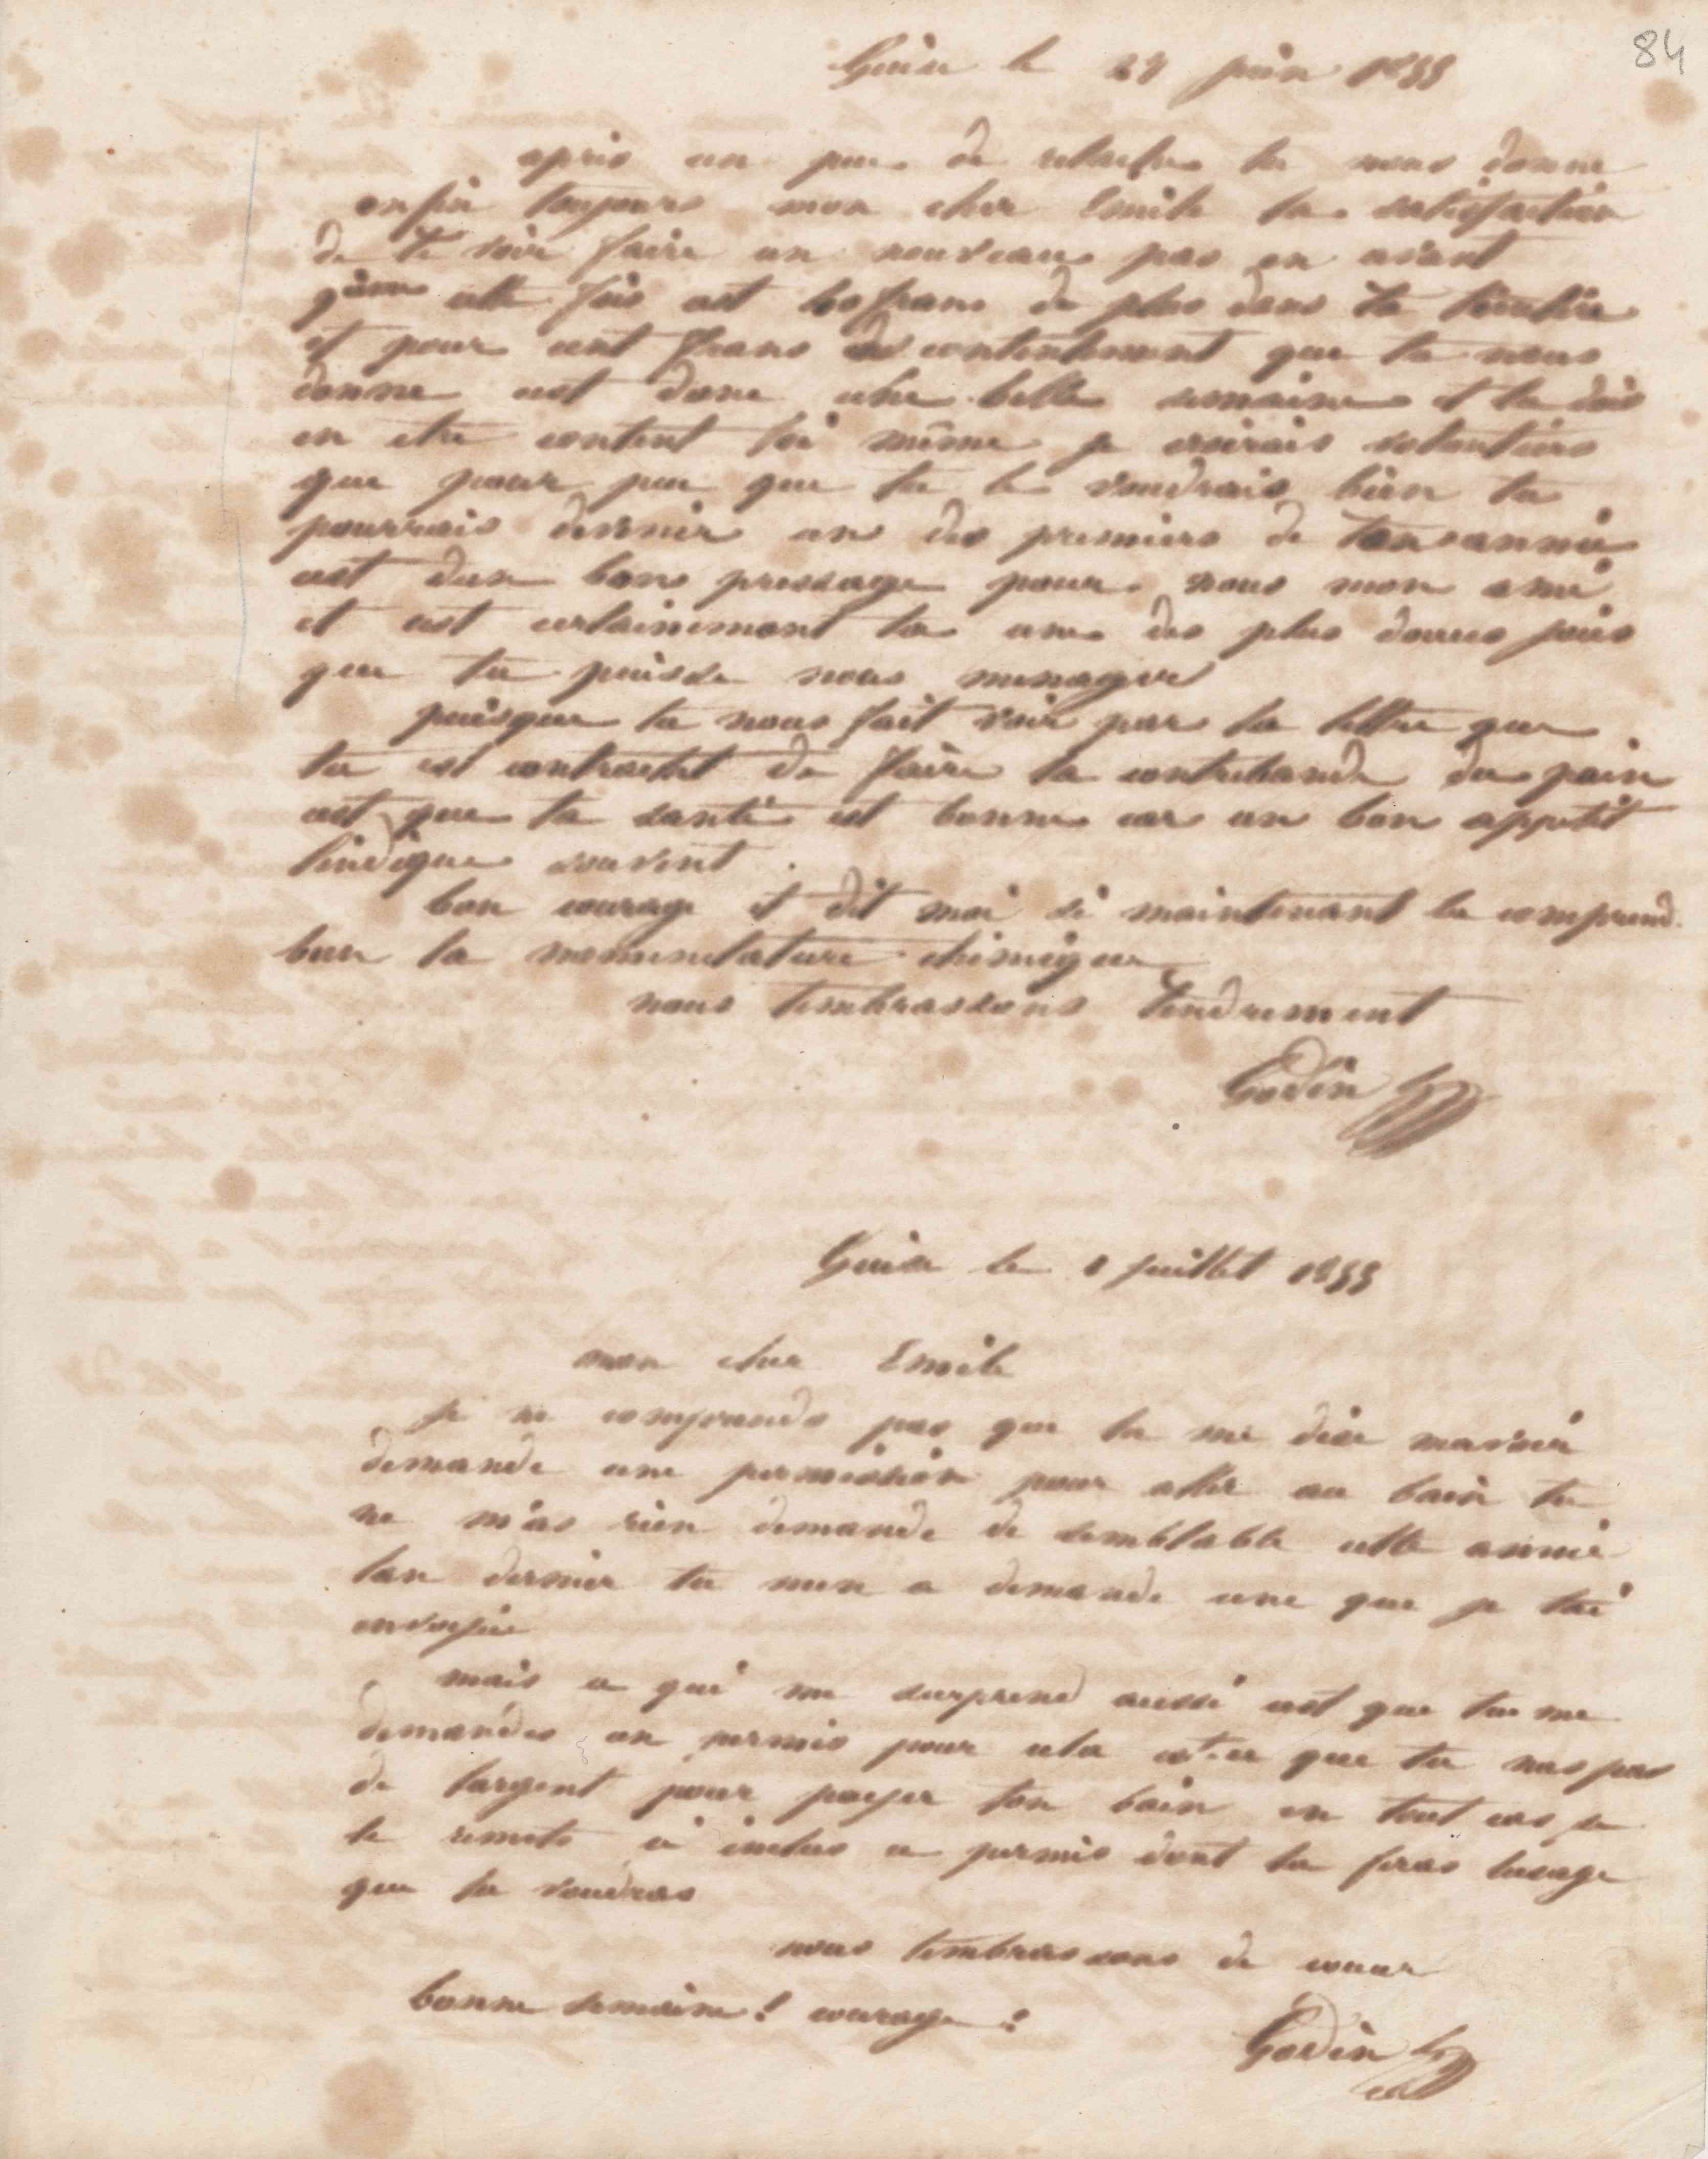 84
Guise le 27 juin 1855
après un peu de relache tu nous donne
enfin toujours mon cher Emile la satisfaction
de te voir faire un nouveau pas en avant
cette fois cest francs de plus dans ta tirelire
et pour cent francs de contentement que tu nous
donne cest donc une belle semaine et tu dois
en etre content toi même je croirais volontiers
que pour peu que tu le voudrais bien tu
pourrais devenir un des premiers de ton année
cest dun bon pressage pour nous mon ami
et cest certainement la une des plus douces joies
que tu puisse nous menager
puisque tu nous fait voir par ta lettre que
tu est contraint de faire la contrebande du pain
cest que ta santé est bonne car un bon appetit
lindique souvent .
bon courage et dit moi si maintenant tu comprend
bien la nomenclature chimique
nous tembrassons tendrement
Godin
Guise le 1 juillet 1855
mon cher Emile
je ne comprends pas que tu me dise mavoir
demandé une permission pour aller au bain tu
ne m'as rien demandé de semblable cette année
lan dernier tu men a demandé une que je tai
envoyée
mais ce qui me surprend aussi cest que tu me
demandes un permis pour cela est-ce que tu nas pas
de largent pour payer ton bain en tout cas je
te remets ci inclus ce permis dont tu feras lusage
que tu voudras
nous tembrassons de coeur
bonne semaine ! courage !
Godin